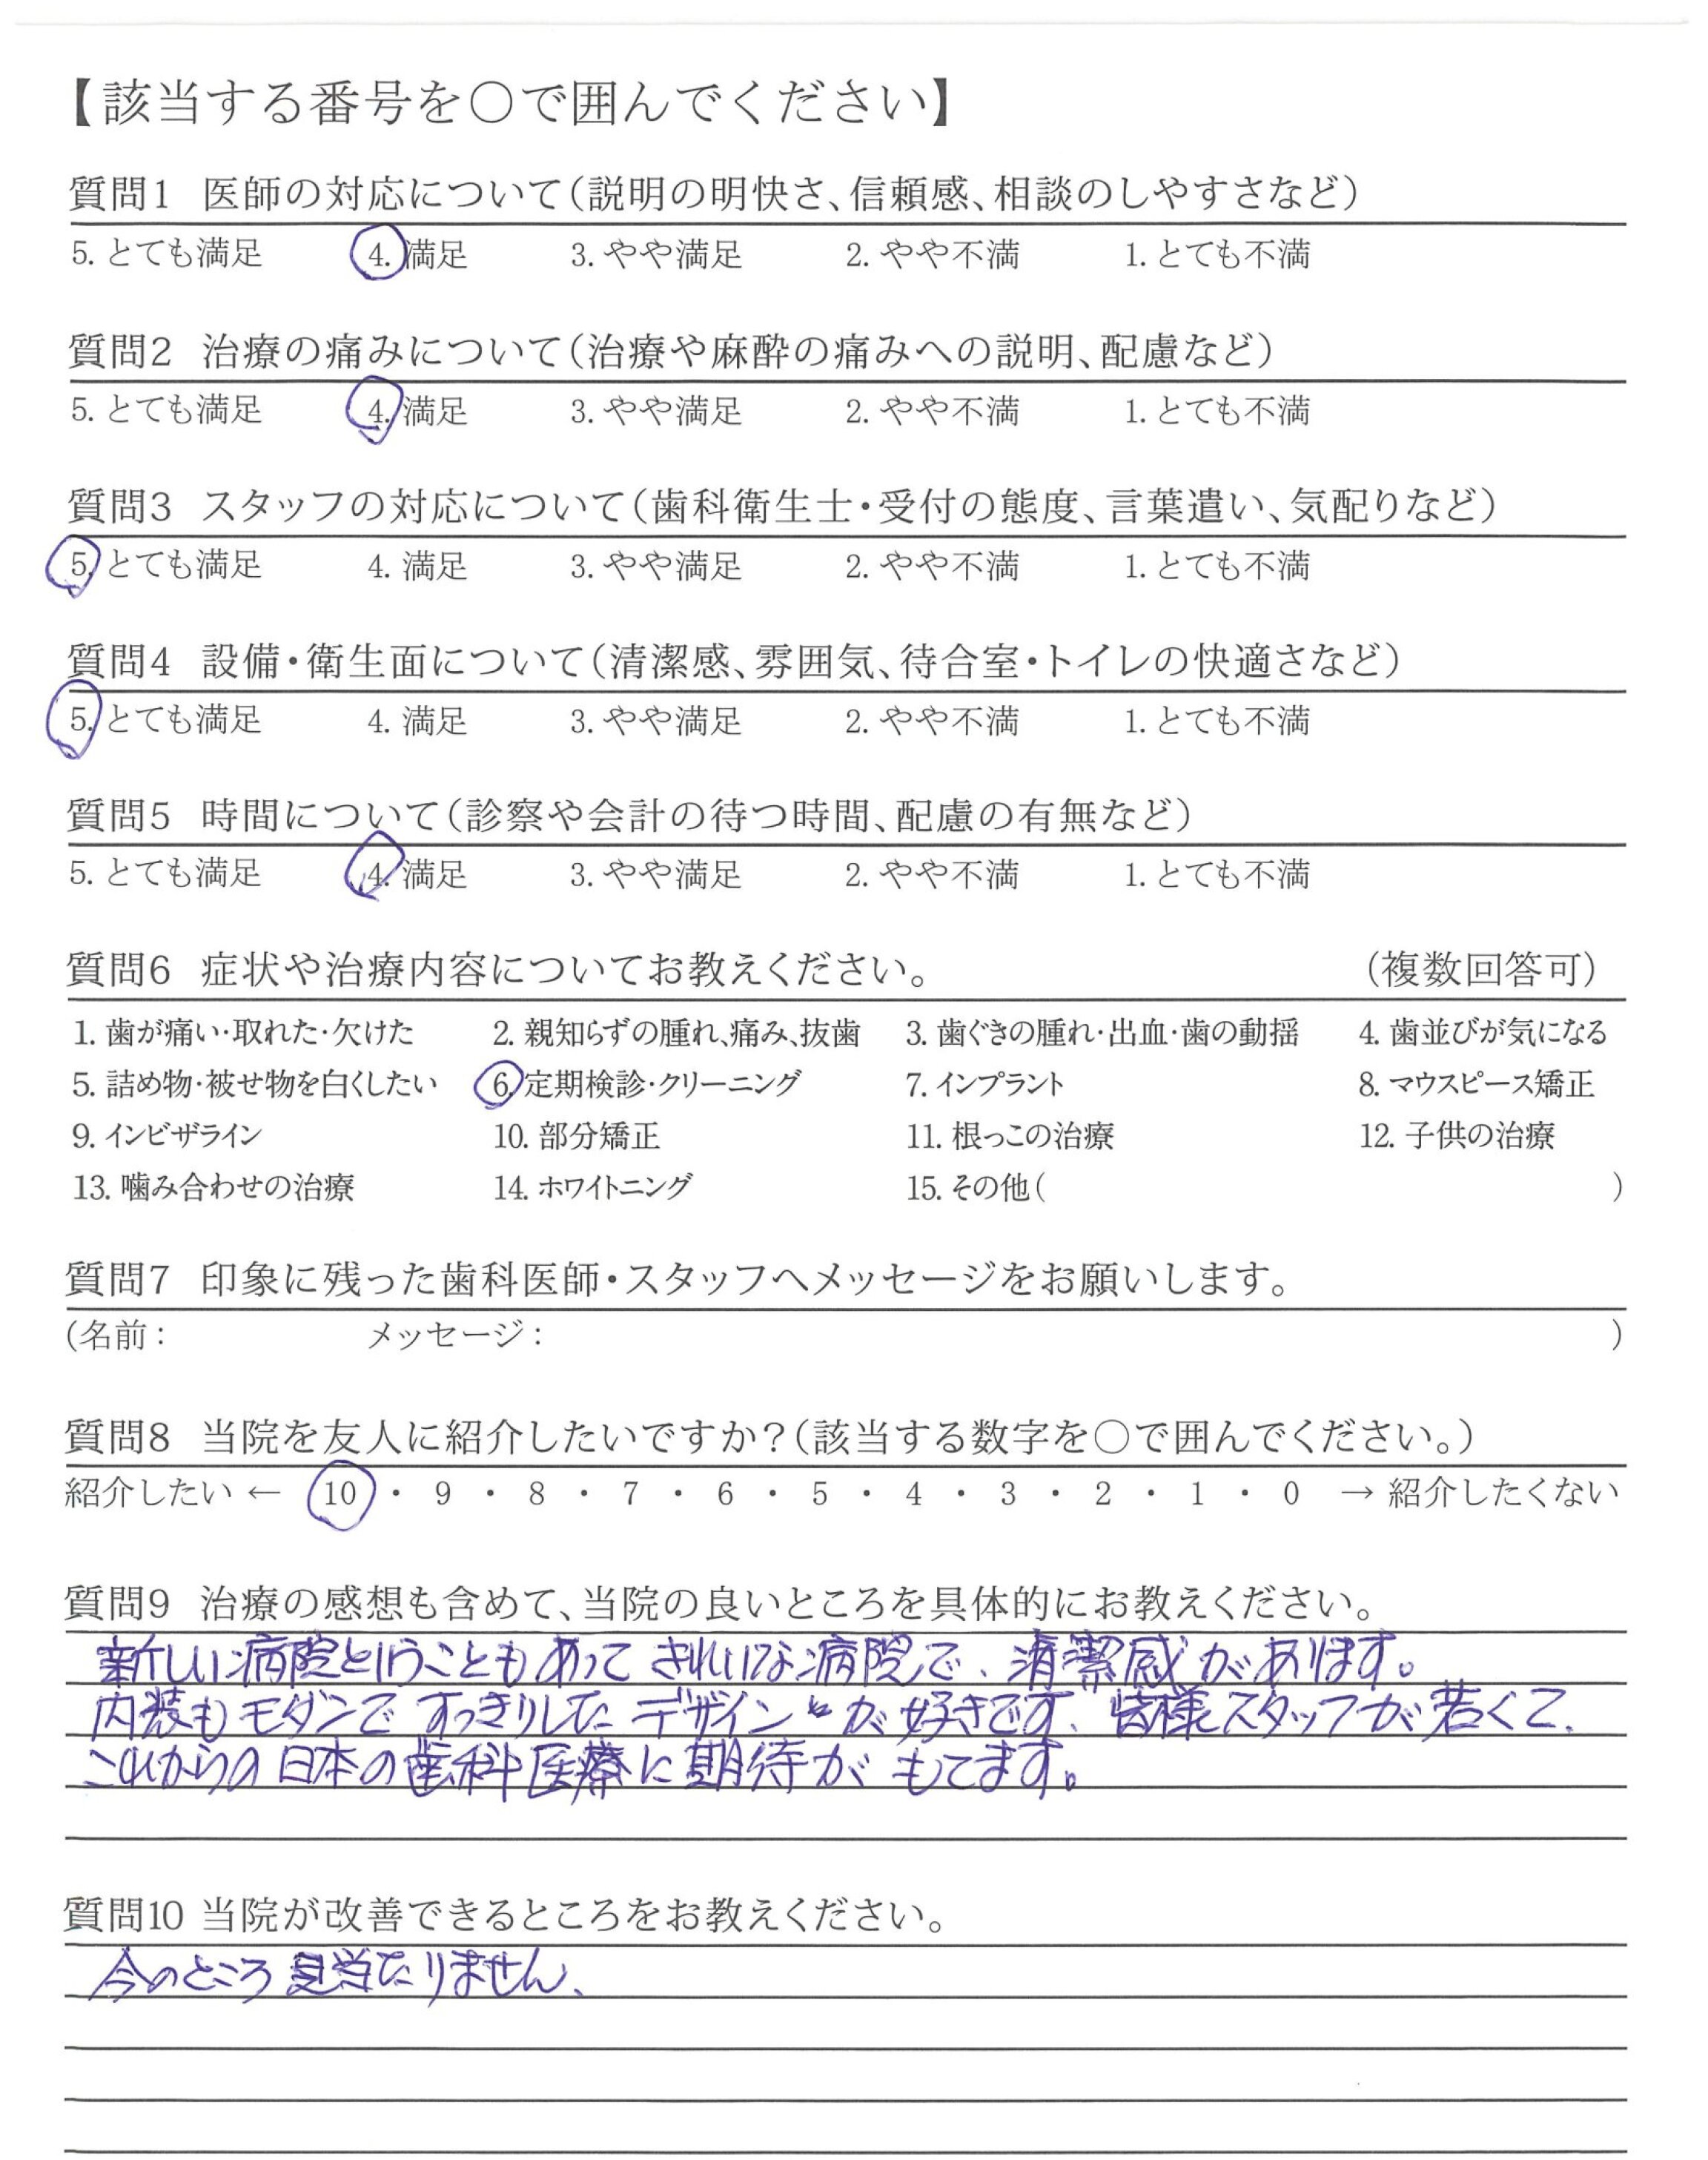 【該当する番号を○で囲んでください】
質問1 医師の対応について(説明の明快さ、信頼感、相談のしやすさなど)
5. とても満足 4. 満足 3. やや満足 2. やや不満 1. とても不満
質問2 治療の痛みについて(治療や麻酔の痛みへの説明、配慮など)
5. とても満足 4. 満足 3. やや満足 2. やや不満 1. とても不満
質問3 スタッフの対応について(歯科衛生士・受付の態度、言葉遣い、気配りなど)
5. とても満足 4. 満足 3. やや満足 2. やや不満 1. とても不満
質問4 設備・衛生面について(清潔感、雰囲気、待合室・トイレの快適さなど)
5. とても満足 4. 満足 3. やや満足 2. やや不満 1. とても不満
質問5 時間について(診察や会計の待つ時間、配慮の有無など)
5. とても満足 4. 満足 3. やや満足 2. やや不満 1. とても不満
質問6 症状や治療内容についてお教えください。 (複数回答可)
1. 歯が痛い・取れた・欠けた 2. 親知らずの腫れ、痛み、抜歯 3. 歯ぐきの腫れ・出血・歯の動揺 4. 歯並びが気になる
5. 詰め物・被せ物を白くしたい 6. 定期検診・クリーニング 7. インプラント 8. マウスピース矯正
9. インビザライン 10. 部分矯正 11. 根っこの治療 12. 子供の治療
13. 噛み合わせの治療 14. ホワイトニング 15. その他( )
質問7 印象に残った歯科医師・スタッフへメッセージをお願いします。
(名前: メッセージ: )
質問8 当院を友人に紹介したいですか?(該当する数字を○で囲んでください。)
紹介したい ← 10 ・ 9 ・ 8 ・ 7 ・ 6 ・ 5 ・ 4 ・ 3 ・ 2 ・ 1 ・ 0 → 紹介したくない
質問9 治療の感想も含めて、当院の良いところを具体的にお教えください。
新しい病院ということもあって きれいな病院で、清潔感があります。
内装もモダンで すっきりした デザイン が好きです、皆様スタッフが若くて、
これからの日本の歯科医療に期待が もてます。
質問10 当院が改善できるところをお教えください。
今のところ 見当たりません、